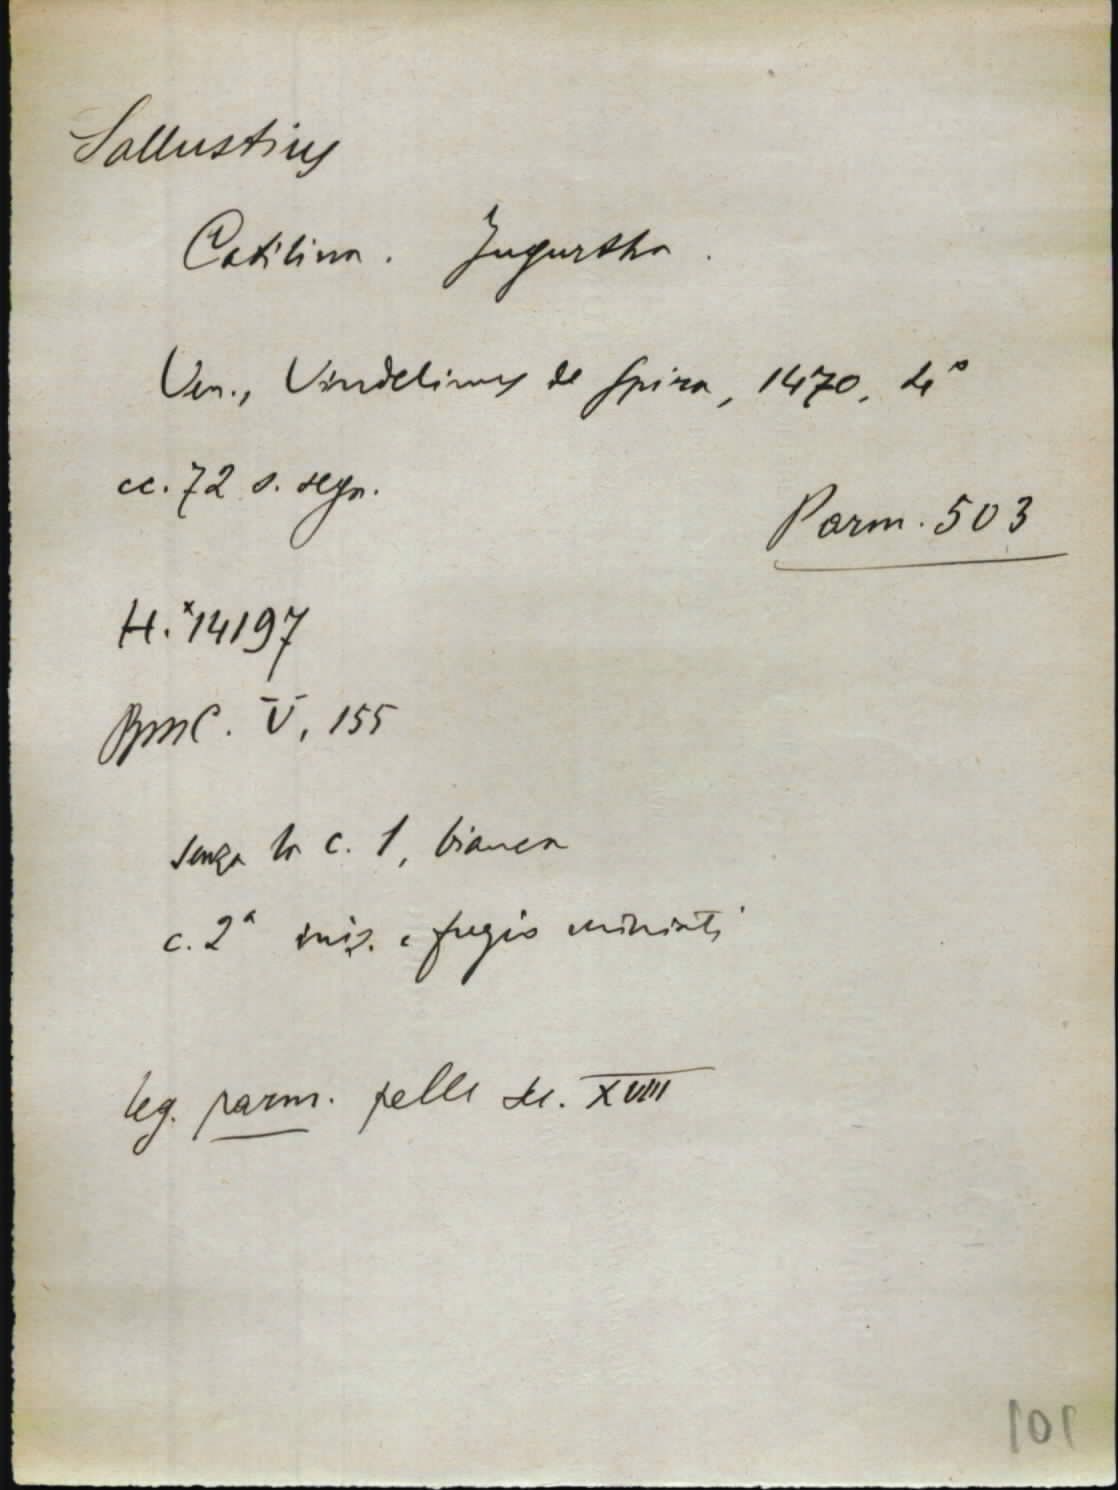 Sallustius
Catilina. Jugurtha.
Ven., Vindelinus de Spira, 1470, 4°
cc. 72 s. segn.
Parm. 503
H. *14197
BMC. V, 155
senza la c. 1, bianca
c. 2ª iniz. e fregio miniati
leg. parm. pelle sec. XVIII
101